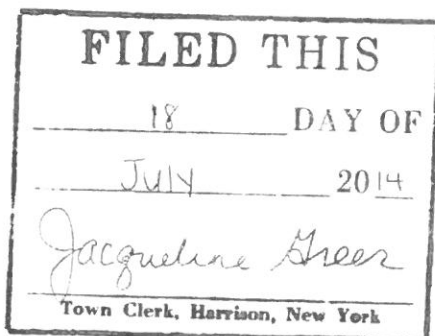 FILED THIS
18 DAY OF
JULY 2014
Jacqueline Greer
Town Clerk, Harrison, New York